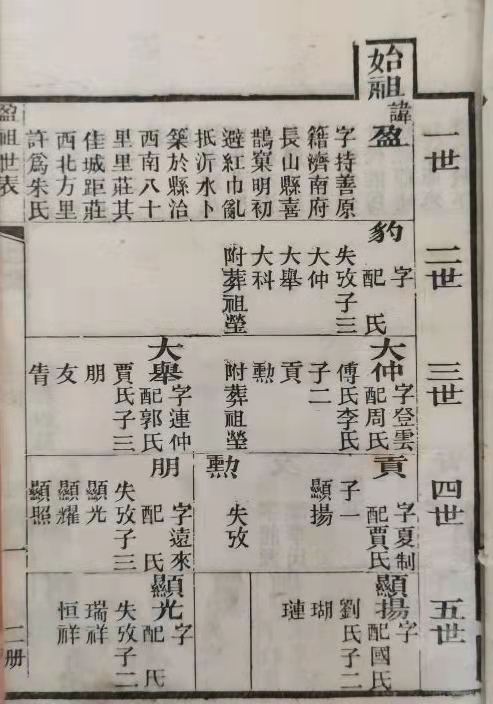 始祖
一世
諱盈
字持善原
籍濟南府
長山縣喜
鵲窠明初
避紅巾亂
抵沂水卜
築於縣治
西南八十
里里莊其
佳城距莊
西北方里
許爲朱氏
二世
豹
字
配 氏
失攷子三
大仲
大舉
大科
附葬祖塋
三世
大仲
字登雲
配周氏
傅氏李氏
子二
貢
勲
附葬祖塋
大舉
字連仲
配郭氏
賈氏子三
朋
友
四世
貢
字夏制
配賈氏
子一
顯揚
勲
失攷
朋
字遠來
配 氏
失攷子三
顯光
顯耀
顯照
五世
顯揚
字
配國氏
劉氏子二
瑚
璉
顯光
字
配 氏
失攷子二
瑞祥
恒祥
盈祖世表
一
二册